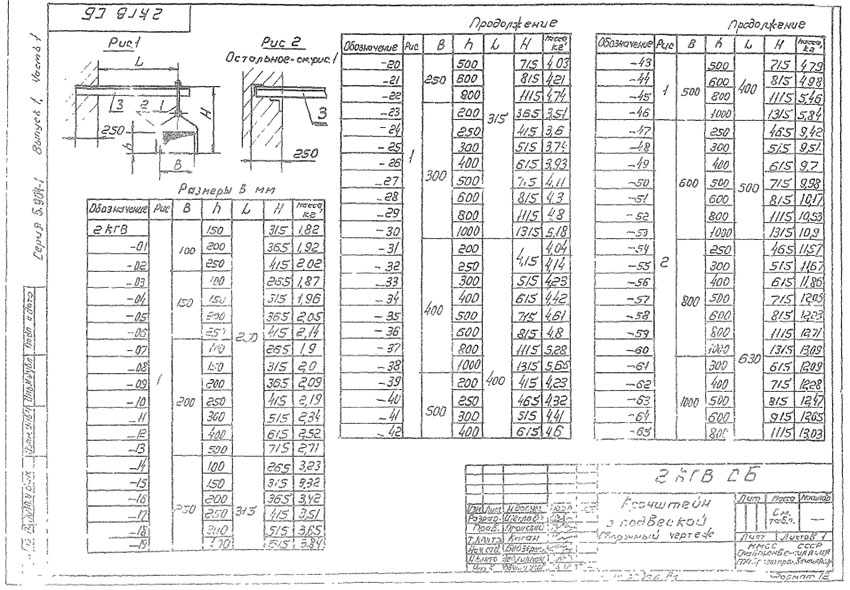 2 КГВ СБ
Серия 5.904-1 Выпуск 1, Часть 1
Рис.1
L
H
3
2
1
250
h
B
Рис 2
Остальное-см.рис.1
3
250
Размеры в мм
Обозначение Рис B h L H масса, кг
2 КГВ 1 100 150 230 315 1,82
-01 200 365 1,92
-02 250 415 2,02
-03 150 100 265 1,87
-04 150 315 1,96
-05 200 365 2,05
-06 250 415 2,14
-07 200 100 265 1,9
-08 150 315 2,0
-09 200 365 2,09
-10 250 415 2,19
-11 300 515 2,34
-12 400 615 2,52
-13 500 715 2,71
-14 250 100 315 265 3,23
-15 150 315 3,32
-16 200 365 3,42
-17 250 415 3,51
-18 300 515 3,65
-19 400 615 3,84
Продолжение
Обозначение Рис B h L H масса кг
-20 1 250 500 315 715 4,03
-21 600 815 4,21
-22 800 1115 4,74
-23 300 200 365 3,51
-24 250 415 3,6
-25 300 515 3,74
-26 400 615 3,93
-27 500 715 4,11
-28 600 815 4,3
-29 800 1115 4,8
-30 1000 1315 5,18
-31 400 200 400 4,04
-32 250 415 4,14
-33 300 515 4,23
-34 400 615 4,42
-35 500 715 4,61
-36 600 815 4,8
-37 800 1115 5,28
-38 1000 1315 5,65
-39 500 200 415 4,23
-40 250 465 4,32
-41 300 515 4,41
-42 400 615 4,6
Продолжение
Обозначение Рис B h L H масса, кг
-43 1 500 500 400 715 4,79
-44 600 815 4,98
-45 800 1115 5,46
-46 1000 1315 5,84
-47 2 600 250 500 465 9,42
-48 300 515 9,51
-49 400 615 9,7
-50 500 715 9,98
-51 600 815 10,17
-52 800 1115 10,53
-53 1000 1315 10,9
-54 800 250 630 465 11,57
-55 300 515 11,67
-56 400 615 11,86
-57 500 715 12,03
-58 600 815 12,23
-59 800 1115 12,71
-60 1000 1315 13,09
-61 1000 300 615 12,09
-62 400 715 12,28
-63 500 815 12,47
-64 600 915 12,65
-65 800 1115 13,03
2 КГВ СБ
Кронштейн
с подвеской
Сборочный чертеж
Лит Масса Масштаб
См. табл. —
Лист Листов 1
ММСС СССР
Изм Лист
Разраб.
Пров.
Т.контр. Коган
Нач.отд.
Н.контр
Утв.
Формат 12